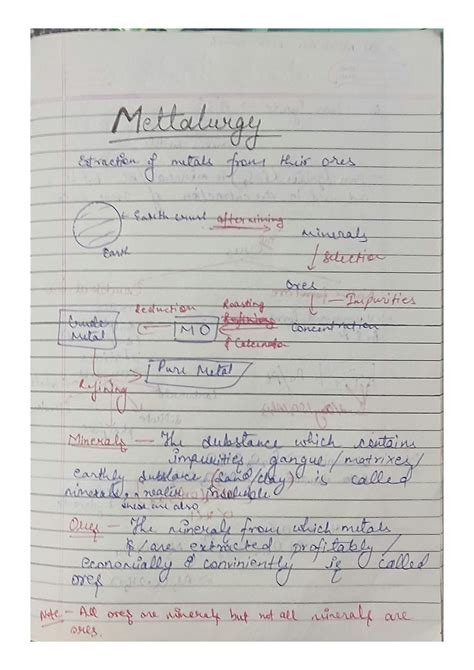 Mettalurgy
Extraction of metals from their ores
Earth crust after mining Minerals
Earth
Selection
Ores
Impurities
Crude Metal Reduction MO Roasting Refining & Calcination Concentration
Pure Metal
Refining
Minerals — The substance which contains
impurities / gangue / matrixes /
earthly substance (sand/clay) is called
minerals, insoluble
these are also
Ores — The minerals from which metals
is/are extracted profitably /
economically & conviniently is called
ores
Note — All ores are minerals but not all minerals are
ores.